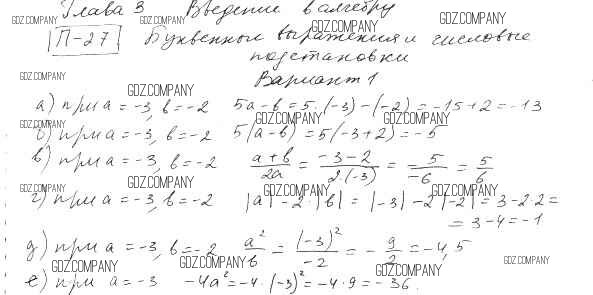 Глава 3 Введение в алгебру
GDZ.COMPANY GDZ.COMPANY GDZ.COMPANY GDZ.COMPANY
П-27 Буквенные выражения и числовые
подстановки
GDZ.COMPANY
Вариант 1
GDZ.COMPANY
а) при a = -3, b = -2 5a - b = 5·(-3) - (-2) = -15 + 2 = -13
GDZ.COMPANY GDZ.COMPANY GDZ.COMPANY
б) при a = -3, b = -2 5(a - b) = 5(-3 + 2) = -5
GDZ.COMPANY GDZ.COMPANY
в) при a = -3, b = -2 a + b / 2a = -3 - 2 / 2(-3) = -5 / -6 = 5 / 6
GDZ.COMPANY GDZ.COMPANY GDZ.COMPANY GDZ.COMPANY
г) при a = -3, b = -2 |a| - 2·|b| = |-3| - 2|-2| = 3 - 2·2 =
= 3 - 4 = -1
д) при a = -3, b = -2 a² / b = (-3)² / -2 = - 9 / 2 = -4,5
GDZ.COMPANY GDZ.COMPANY GDZ.COMPANY GDZ.COMPANY
е) при a = -3 -4a² = -4·(-3)² = -4·9 = -36.